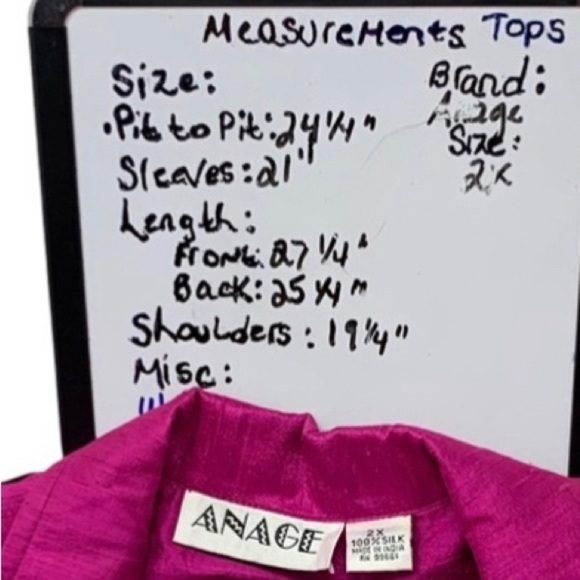 Measurements Tops
Size:
Brand:
Anage
Size:
2X
• Pit to Pit: 24 1/4"
Sleaves: 21"
Length:
Front: 27 1/4"
Back: 25 1/4"
Shoulders: 19 1/4"
Misc:
ANAGE
2X
100% SILK
MADE IN INDIA